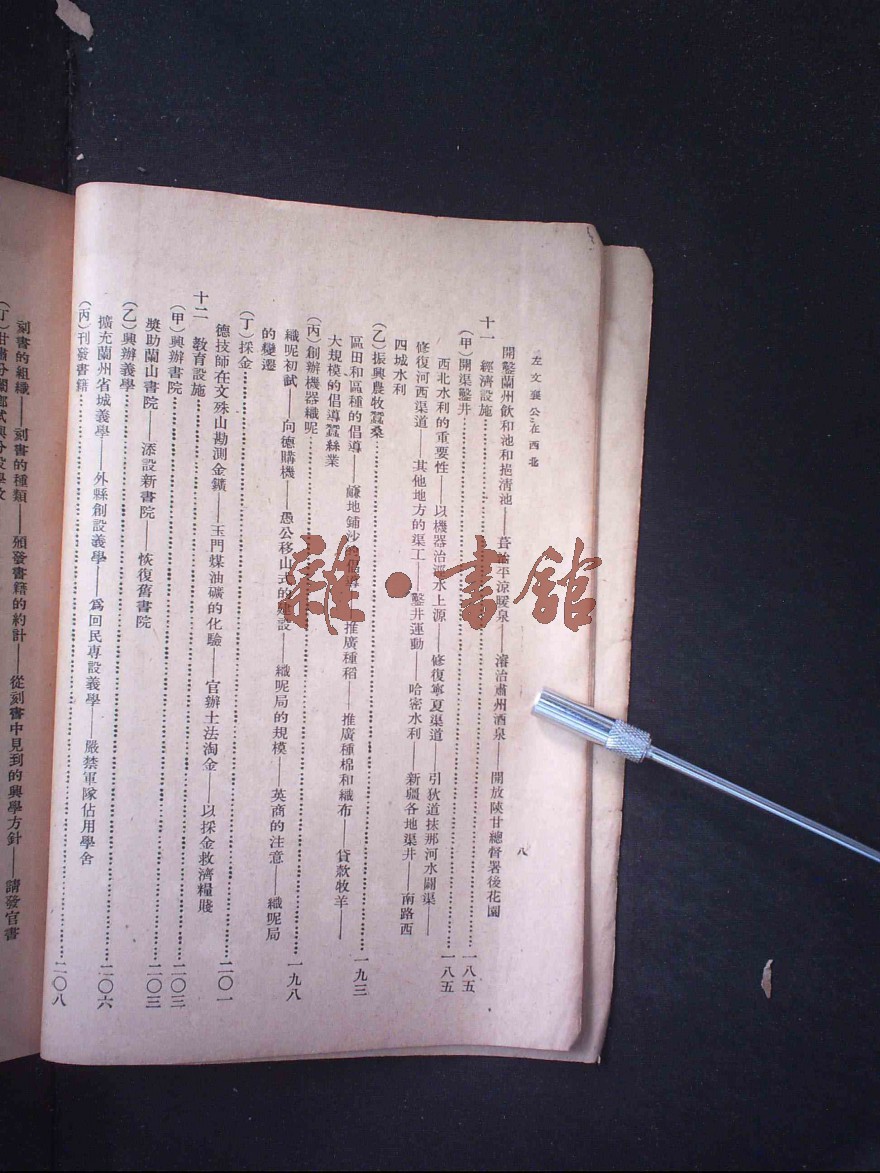 左文襄公在西北
八
開鑿蘭州飲和池和挹清池——葺平涼暖泉——濬治肅州酒泉——開放陝甘總督署後花園
十一 經濟設施……一八五
(甲)開渠鑿井……一八五
西北水利的重要性——以機器治涇水上源——修復寧夏渠道——引狄道抹那河水闢渠——
修復河西渠道——其他地方的渠工——鑿井運動——哈密水利——新疆各地渠井——南路西
四城水利
(乙)振興農牧蠶桑……一九三
區田和區種的倡導——鹻地鋪沙的倡導——推廣種稻——推廣種棉和織布——貸款牧羊——
大規模的倡導蠶絲業
(丙)創辦機器織呢……一九八
織呢初試——向德購機——愚公移山式的建設——織呢局的規模——英商的注意——織呢局
的變遷
(丁)採金……二〇一
德技師在文殊山勘測金鑛——玉門煤油礦的化驗——官辦土法淘金——以採金救濟糧賤
十二 教育設施……二〇三
(甲)興辦書院……二〇三
獎助蘭山書院——添設新書院——恢復舊書院
(乙)興辦義學……二〇六
擴充蘭州省城義學——外縣創設義學——爲回民專設義學——嚴禁軍隊佔用學舍
(丙)刊發書籍……二〇八
刻書的組織——刻書的種類——頒發書籍的約計——從刻書中見到的興學方針——請發官書
(丁)甘肅分闈鄉試與分設學政
雜·書館